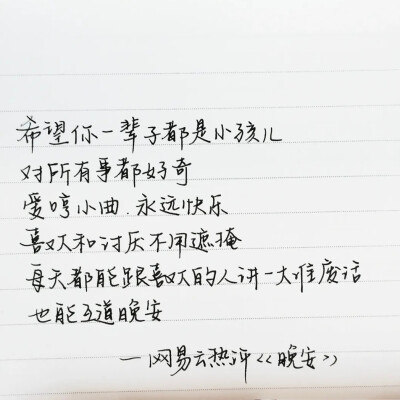 希望你一辈子都是小孩儿
对所有事都好奇
爱哼小曲.永远快乐
喜欢和讨厌不用遮掩
每天都能跟喜欢的人讲一大堆废话
也能互道晚安
—网易云热评<<晚安>>